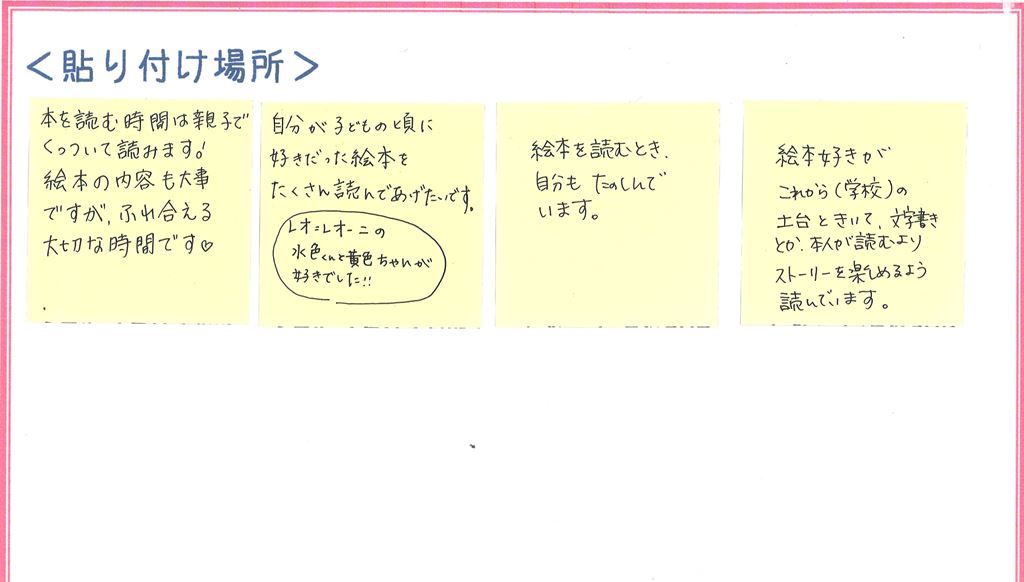 ＜貼り付け場所＞
本を読む時間は親子で
くっついて読みます!
絵本の内容も大事
ですが、ふれ合える
大切な時間です♡
自分が子どもの頃に
好きだった絵本を
たくさん読んであげたいです。
レオ=レオーニの
水色くんと黄色ちゃんが
好きでした!!
絵本を読むとき、
自分もたのしんで
います。
絵本好きが
これから(学校)の
土台ときいて、文字書き
とか、本人が読むより
ストーリーを楽しめるよう
読んでいます。